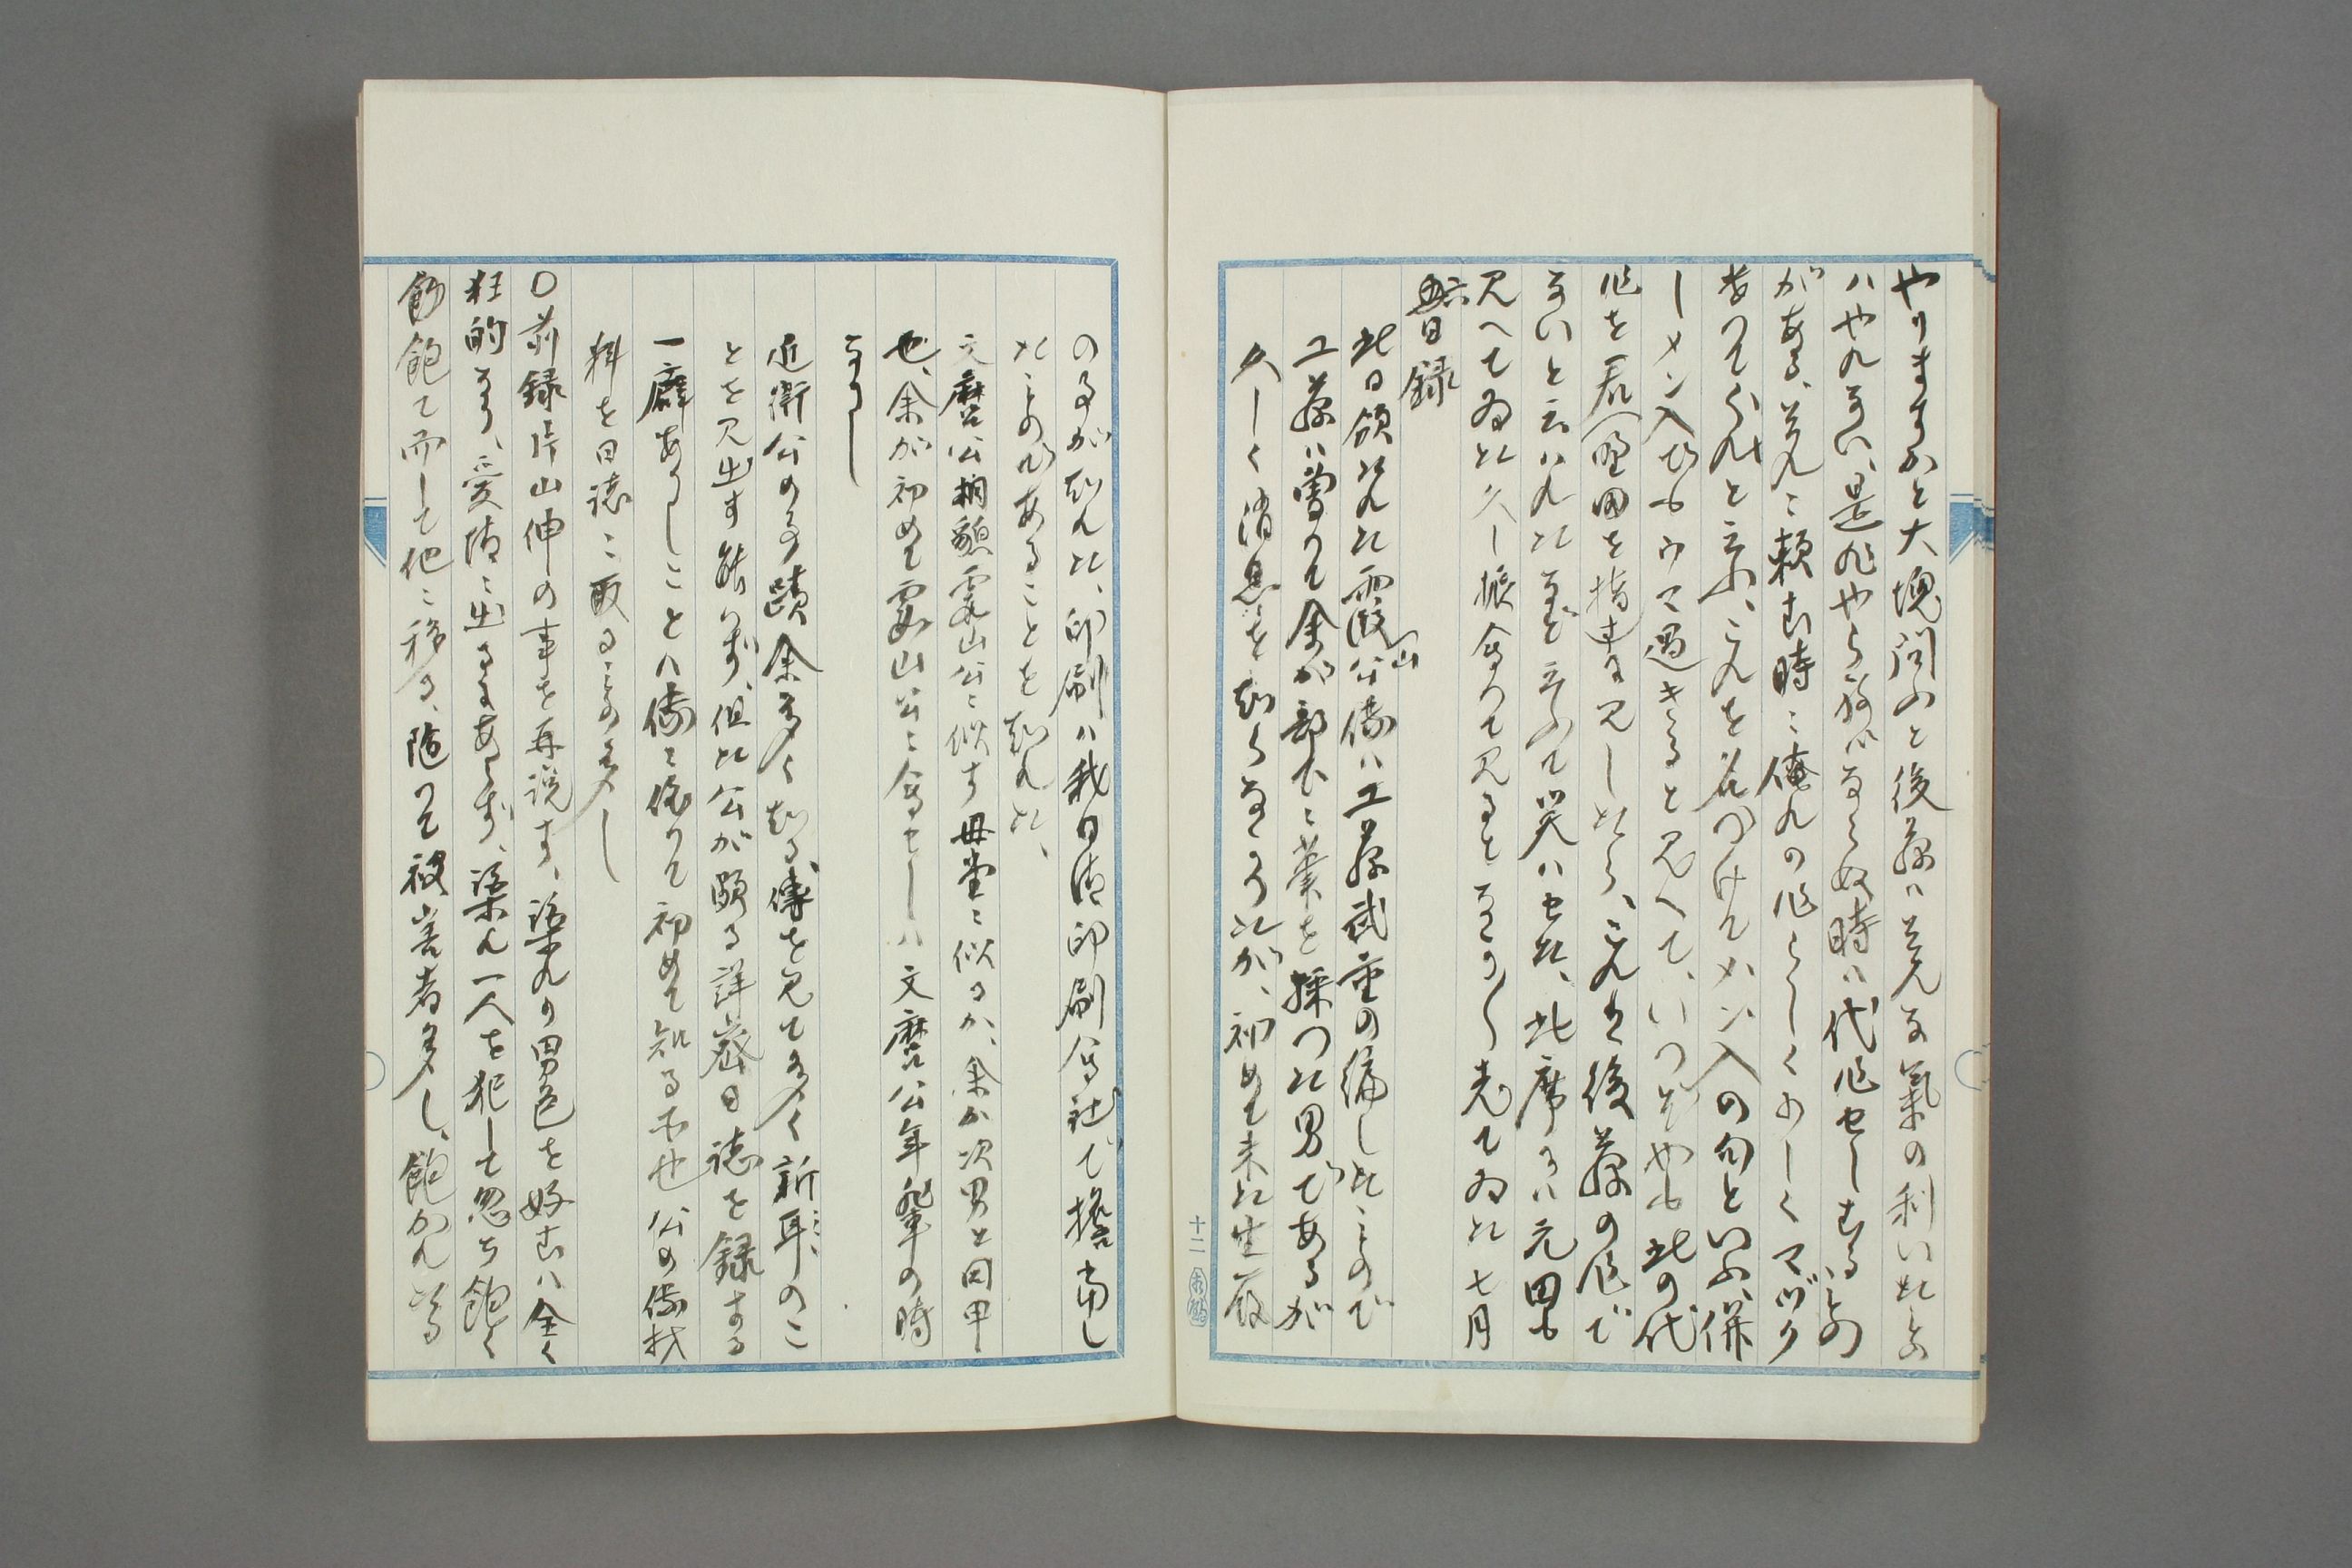 やりますかと大塊問ふと後藤ハそんな氣の利いたもの
ハやれない、是非やらねバならぬ時ハ代作せしむるもの
がある、それニ頼む時ニ俺れの作らしくふしくマヅク
やつてくれと云ふ、これを名つけてメン入の句といふ、併
しメン入でもウマ過きると見へて、いつぞやも此の代
作を君(野田を指す)見したら、これは後藤の作で
ないと云ハれたなど云ふて笑ハせた、此席にハ元田も
見へてゐた久し振会つて見ると なかく老てゐた 七月
六日録
此日領けれた霞山公傳ハ工藤武重の編したものだ
工藤ハ曽つて余が部下ニ筆を採つた男であるが
久しく消息を知らなかつたが、初めて来た生涯
の事が知れた、印刷ハ我日清印刷会社で擔当し
たものであることを知れた、
文麿公相貌霞山公ニ似す母堂ニ似るか、余か次男と同甲
也、余が初めて霞山公ニ会セしハ文麿公年輩の時
なりし
近衛公の事蹟余多く知る、傳を見て多く新耳のこ
とを見出す能ハず、但た公が頗る詳密日誌を録する
一癖ありしことハ傳に依りて初めて知る所也 公の傳材
料を日誌ニ取るもの多し
〇前録片山伸の事を再説す、渠れの男色を好むハ全く
狂的なり、愛情ニ出るにあらず、渠れ一人を犯して忽ち飽く
飽て而して他ニ移る、随つて被害者多し、飽かれ
十二